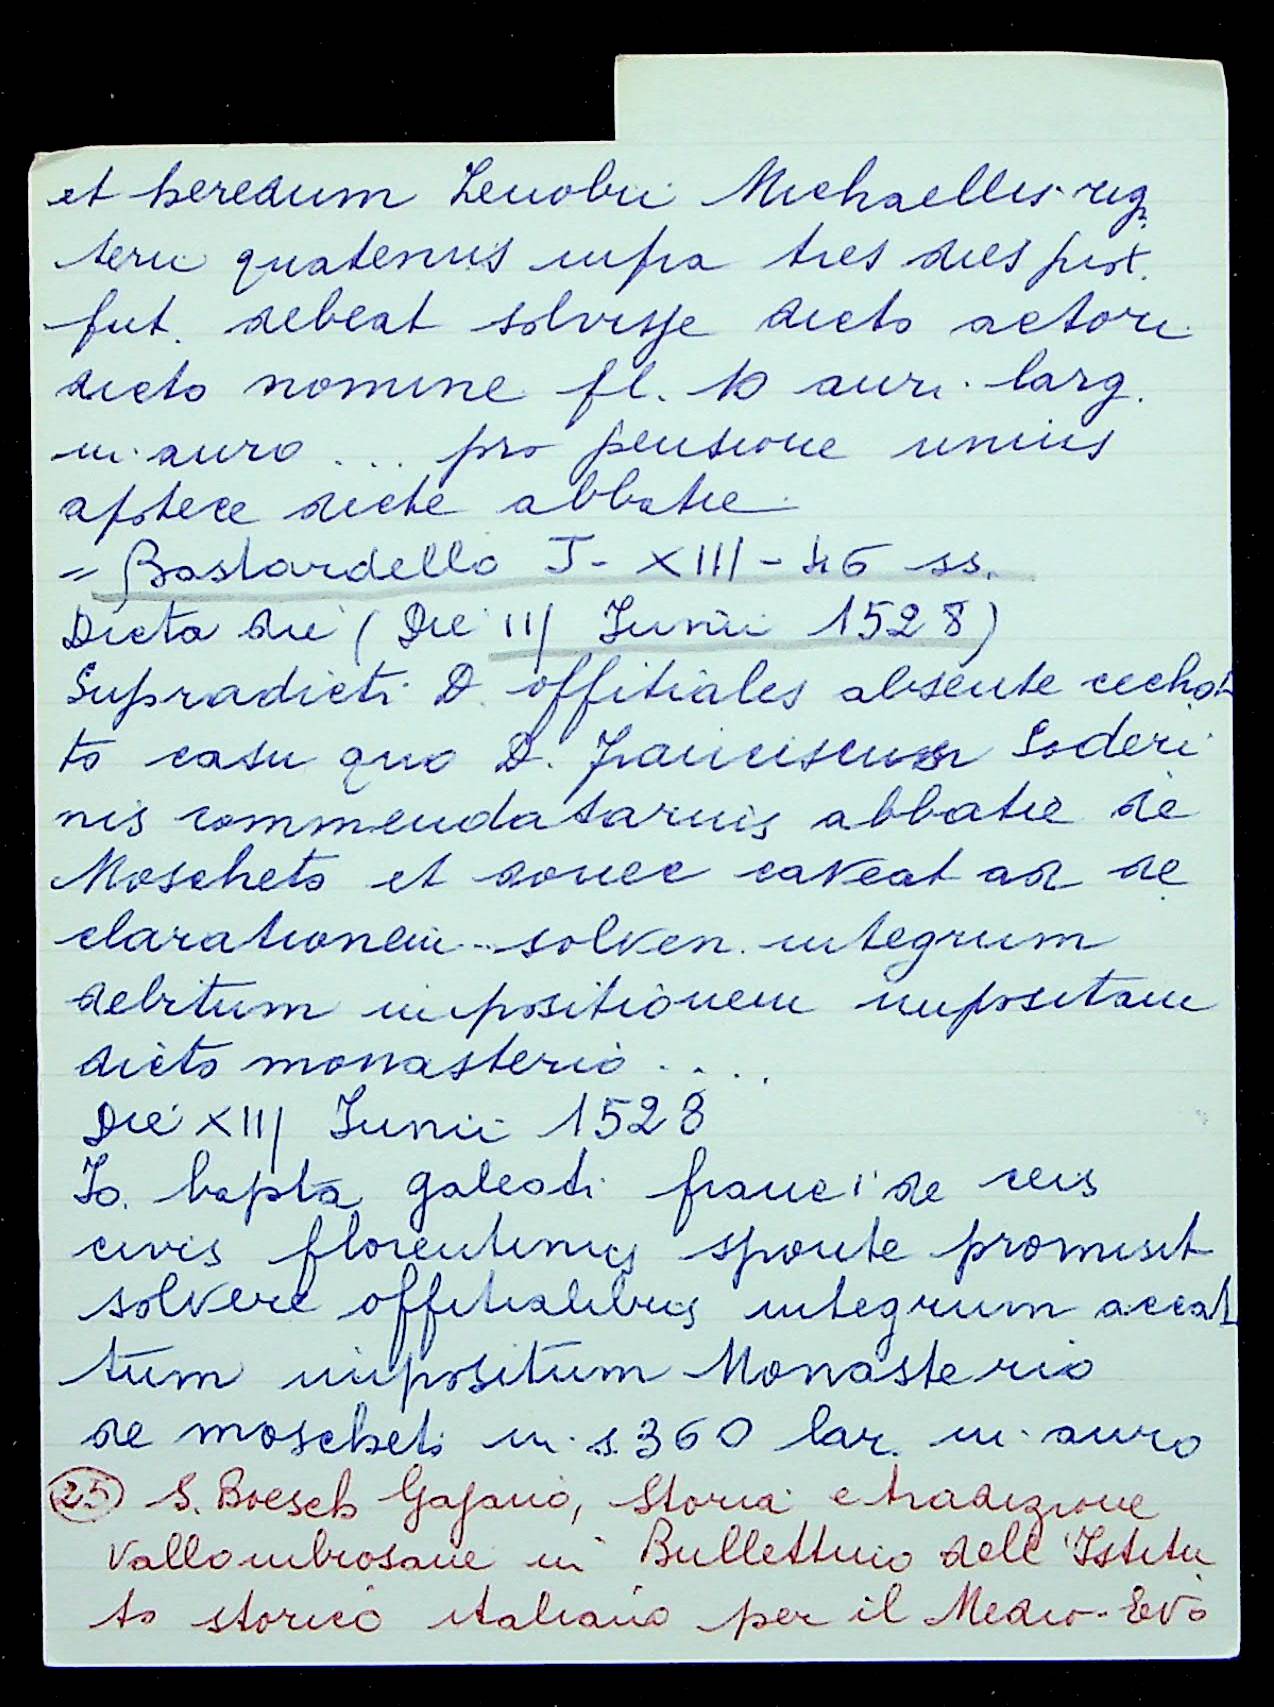 et heredum Zenobii Michaellis rig.
terii quatenus infra tres dies prox.
fut. debeat solvisse dicto actori
dicto nomine fl. 10 auri larg.
in auro ... pro pensione unius
apotece dicte abbatie
= Bastardello J - XIII - 46 ss.
Dicta die (Die III Junii 1528)
Supradicti D. offitiales absente
to casu quo D. Franciscus Soderi
nis commendatarius abbatie de
Moscheto et donec caveat ad de
clarationem .. solven. integrum
debitum impositionem impositam
dicto monasterio ....
Die XIII Junii 1528
Jo. bapta galeoti franci de ceis
civis florentinus sponte promisit
solvere offitialibus integrum accat
tum impositum Monasterio
de moscheti in s. 360 lar. in auro
(25) S. Boesch Gajano, Storia e tradizione
Vallombrosane in Bullettino dell'Istitu
to storico italiano per il Medio-Evo